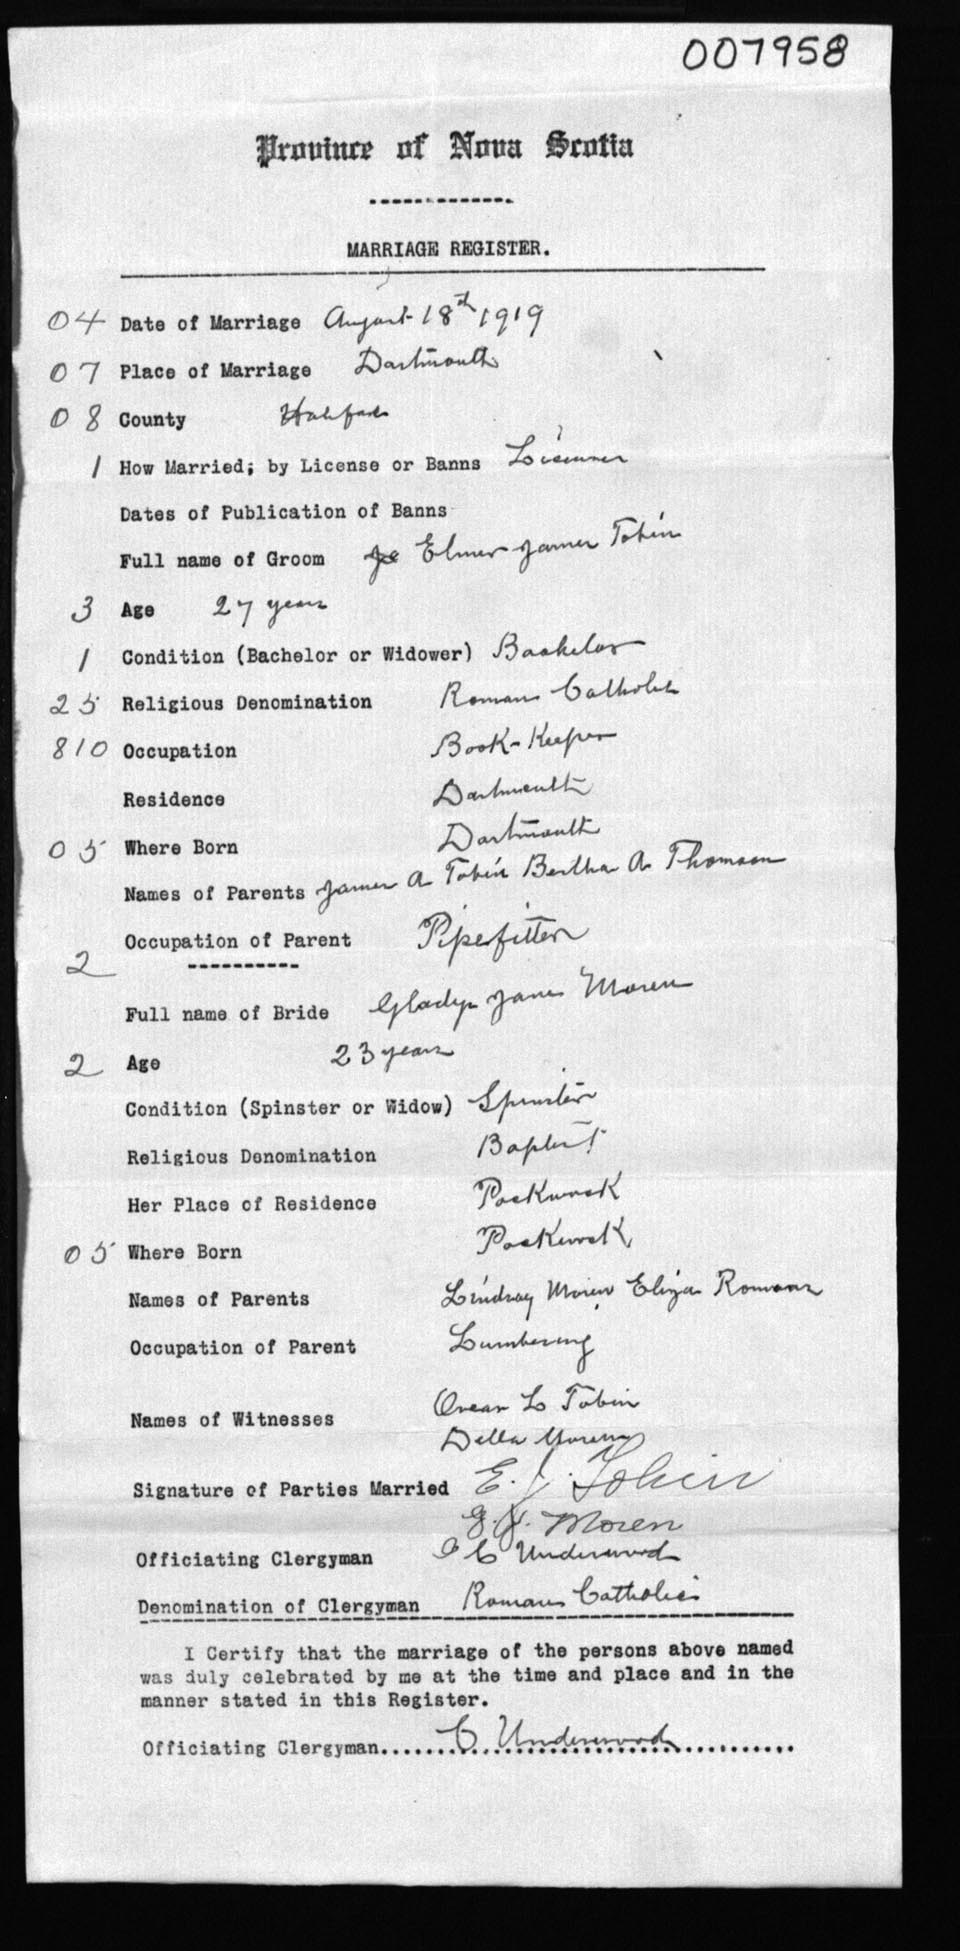 007958
Province of Nova Scotia
MARRIAGE REGISTER.
04 Date of Marriage August 18th 1919
07 Place of Marriage Dartmouth
08 County Halifax
1 How Married; by License or Banns License
Dates of Publication of Banns
Full name of Groom Elmer James Tobin
3 Age 27 years
1 Condition (Bachelor or Widower) Bachelor
25 Religious Denomination Roman Catholic
810 Occupation Book-Keeper
Residence Dartmouth
05 Where Born Dartmouth
Names of Parents James A Tobin Bertha A Thomson
Occupation of Parent Pipefitter
2
Full name of Bride Gladys Jane Moren
2 Age 23 years
Condition (Spinster or Widow) Spinster
Religious Denomination Baptist
Her Place of Residence Pockwock
05 Where Born Pockwock
Names of Parents Lindsay Moren Eliza Romans
Occupation of Parent Lumbering
Names of Witnesses Oscar L Tobin
Della Moren
Signature of Parties Married E. J. Tobin
G. J. Moren
Officiating Clergyman C Underwood
Denomination of Clergyman Roman Catholic
I Certify that the marriage of the persons above named
was duly celebrated by me at the time and place and in the
manner stated in this Register.
Officiating Clergyman........C Underwood........